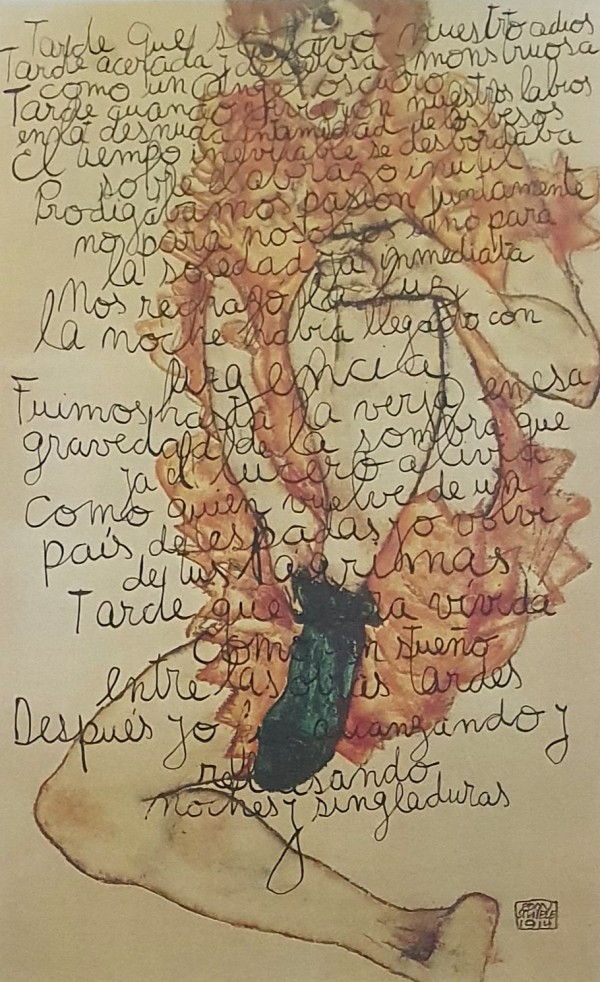 Tarde que socavó nuestro adios
Tarde acerada y deleitosa y monstruosa
como un angel oscuro
Tarde quando vivieron nuestros labios
en la desnuda intimidad de los besos
El tiempo inevitable se desbordaba
sobre el abrazo inutil
Prodigabamos pasion juntamente
no para nosotros sino para
la soledad ya inmediata
Nos rechazo la luz
la noche habia llegado con
urgencia
Fuimos hasta la verja en esa
gravedad de la sombra que
ya el lucero alivia
Como quien vuelve de un
país de espadas yo volvi
de tus lagrimas
Tarde que dura vívida
Como un sueño
entre las otras tardes
Después yo alcanzando y
rebasando
noches y singladuras
EGON
SCHIELE
1914